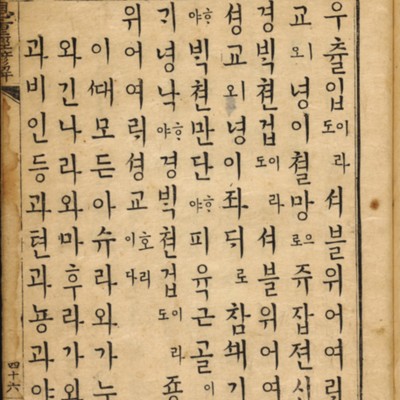 우츌입이도라셔블위어여릭
교외녕이쳘망으로쥬잡젼신
경빅쳔겁이도라셔블위어여
셩교외녕이좌딕로참쇄기
ᄒᆞ야빅쳔만단ᄒᆞ야피육근골이
긔녕낙ᄒᆞ야경빅쳔겁이도라죵
위어여릭셩교호리이다
이ᄯᅢ모든아슈라와가누
와긴나라와마후라가와
과비인등과텬과뇽과야
四十六